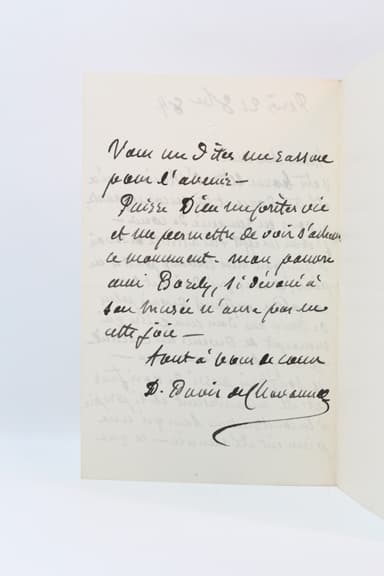 Vous me dites me rassure
pour l'avenir —
Puisse Dieu me prêter vie
et me permettre de voir s'achever
ce monument. Mon pauvre
ami Bozely, si dévoué à
son musée n'aura pas eu
cette joie —
Tout à vous de cœur
P. Puvis de Chavannes